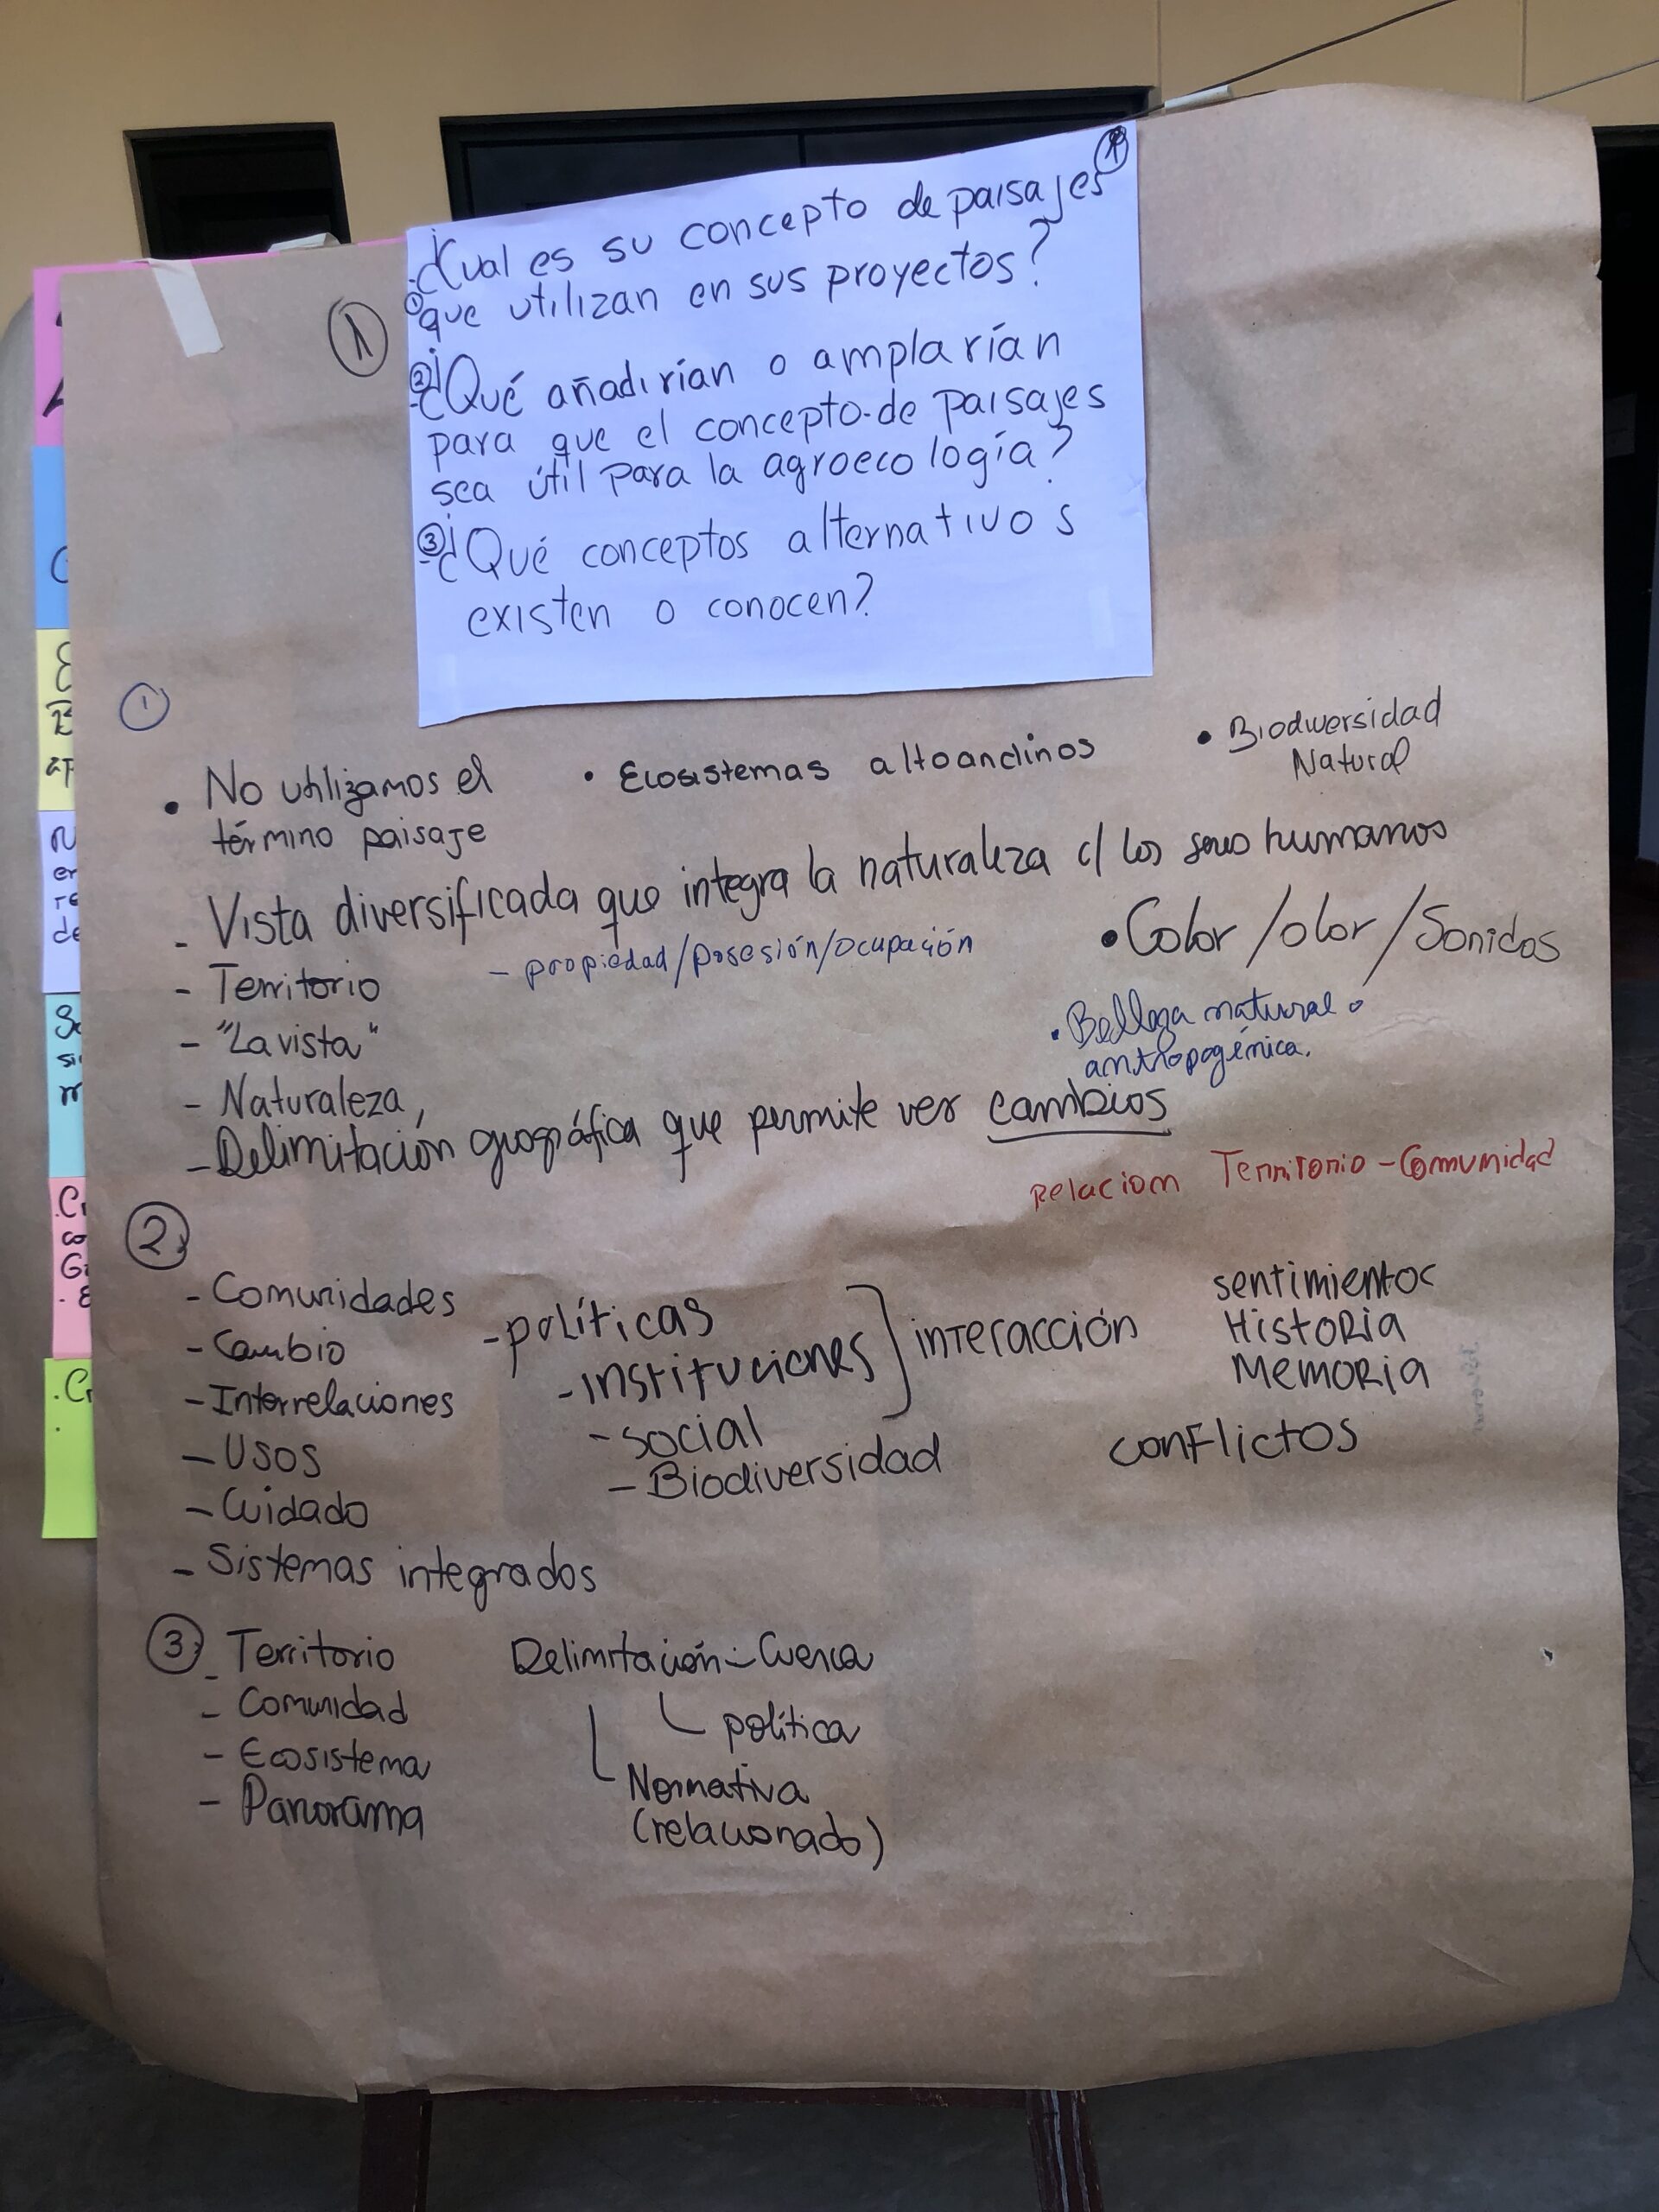 ¿Cual es su concepto de paisajes
① que utilizan en sus proyectos?
② ¿Qué añadirían o amplarían
para que el concepto de paisajes
sea útil para la agroecología?
③ ¿Qué conceptos alternativos
existen o conocen?
①
• No utilizamos el
término paisaje
• Ecosistemas altoandinos
• Biodiversidad
Natural
- Vista diversificada que integra la naturaleza c/ los seres humanos
- Territorio
- propiedad/posesión/ocupación
• Color/olor/Sonidos
- "La vista"
• Belleza natural o
antropogénica.
- Naturaleza,
- Delimitación geográfica que permite ver cambios
Relacion Territorio - Comunidad
②
- Comunidades
- Cambio
- Interrelaciones
- Usos
- Cuidado
- Sistemas integrados
- políticas
- instituciones
] interacción
- social
- Biodiversidad
sentimientos
Historia
Memoria
conflictos
③
- Territorio
- Comunidad
- Ecosistema
- Panorama
Delimitación - Cuenca
política
Normativa
(relacionado)